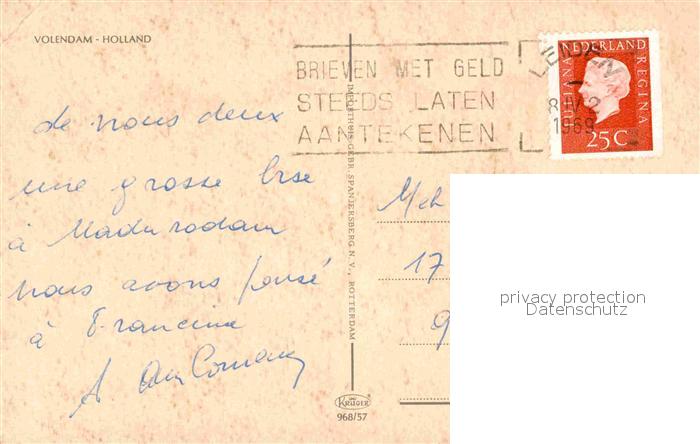 VOLENDAM - HOLLAND
BRIEVEN MET GELD
STEEDS LATEN
AANTEKENEN
LEIDEN
8 IV 2
1969
NEDERLAND
JULIANA
REGINA
25C
de nous deux
une grosse bise
à Madurodam
nous avons pensé
à Francine
A.
IMPORTHUIS GEBR. SPANJERSBERG N.V., ROTTERDAM
17
9
KRÜGER
968/57
privacy protection
Datenschutz